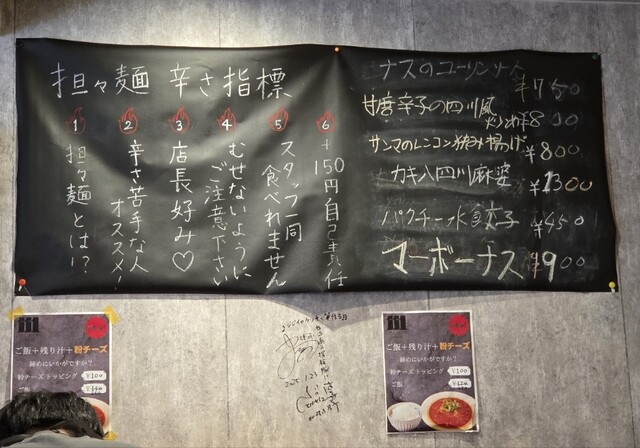 担々麺 辛さ指標
1 担々麺とは!?
2 辛さ苦手な人
オススメ!
3 店長好み♡
4 むせないように
ご注意下さい
5 スタッフ一同
食べれません
6 +150円自己責任
ナスのユーリンソース ¥750
甘唐辛子の四川風
¥800
サンマのレンコン挟み揚げ ¥800
カキ入四川麻婆 ¥1300
パクチー水餃子 ¥450
マーボーナス ¥900
ご飯+残り汁+粉チーズ
締めにいかがですか?
粉チーズトッピング ¥100
ご飯
ご飯+残り汁+粉チーズ
締めにいかがですか?
粉チーズトッピング ¥100
ご飯 ¥150